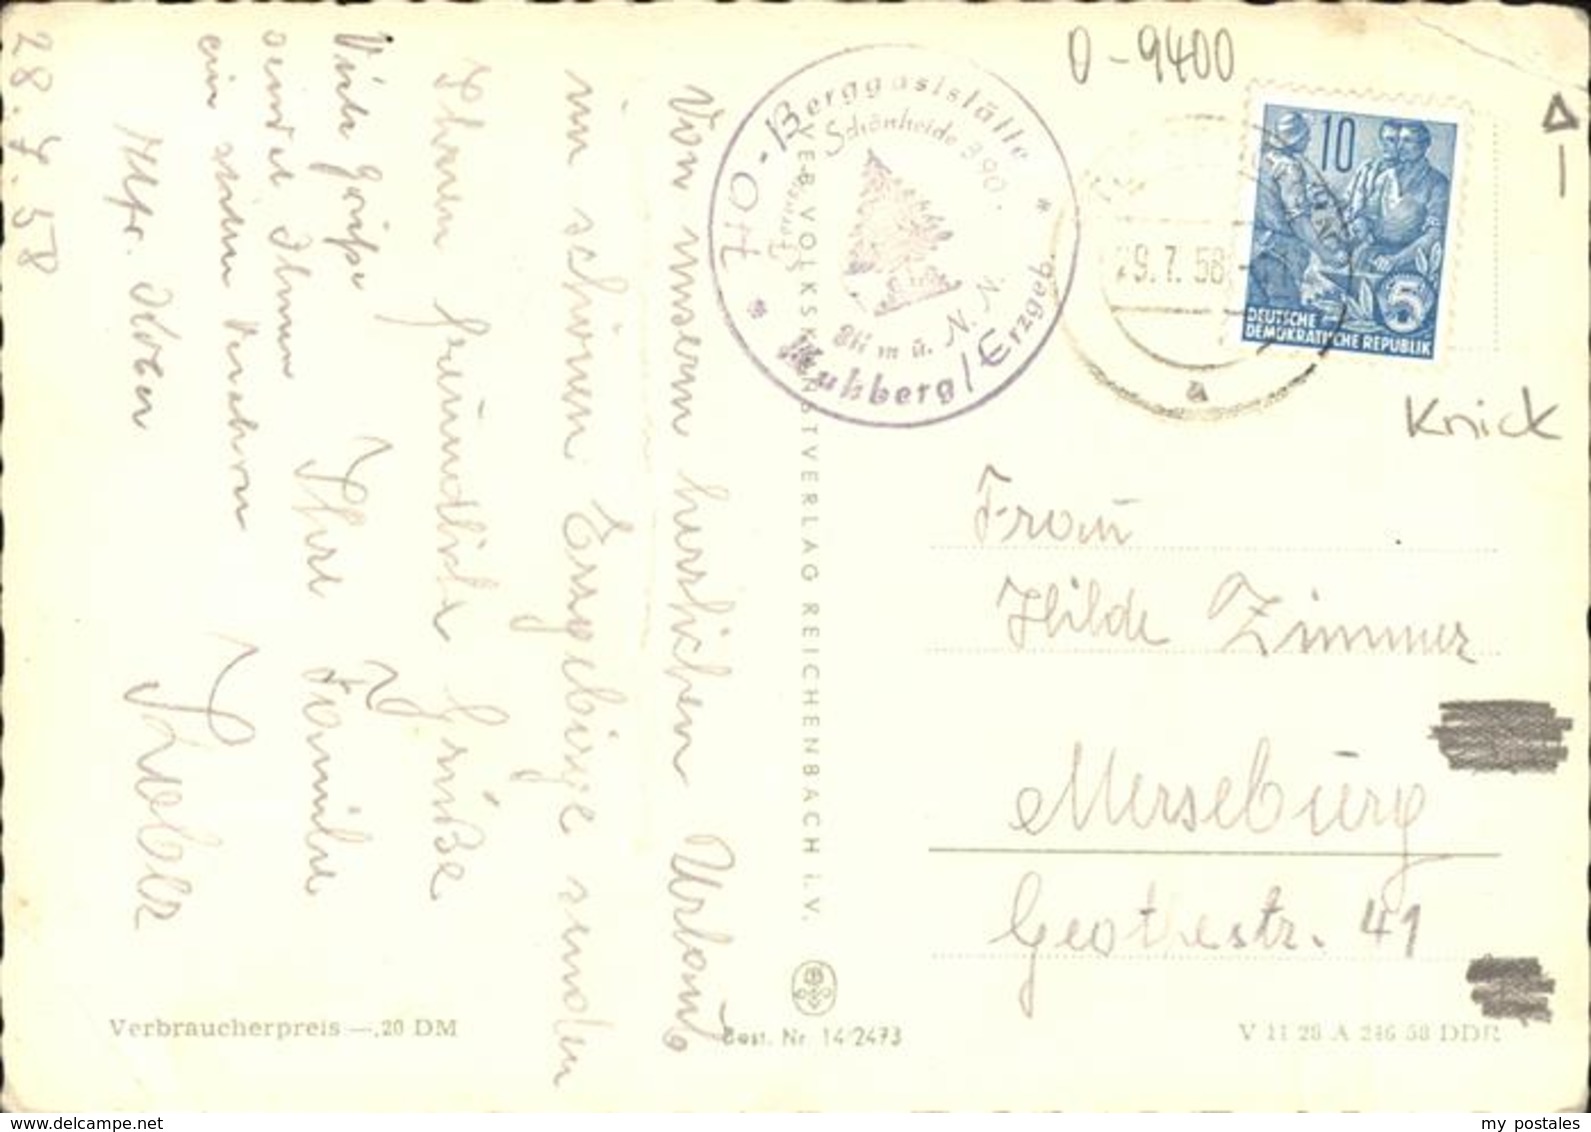 28.7.58
Von unserem herrlichen Urlaub
im schönen Erzgebirge senden
Ihnen freundliche Grüße
Ihre Familie
Viele Grüße
sendet Ihnen
HO-Berggaststätte
Schönheide 390.
Fernruf
811 m ü. N. N.
Kuhberg/Erzgeb.
VEB VOLKSKUNSTVERLAG REICHENBACH i.V.
0-9400
10
5
DEUTSCHE
DEMOKRATISCHE REPUBLIK
29.7.58
a
Knick
Frau
Hilde Zimmer
Merseburg
Geothestr. 41
Verbraucherpreis —,20 DM
Best. Nr. 14/2473
V 11 28 A 246 58 DDR
www.delcampe.net
my_postales